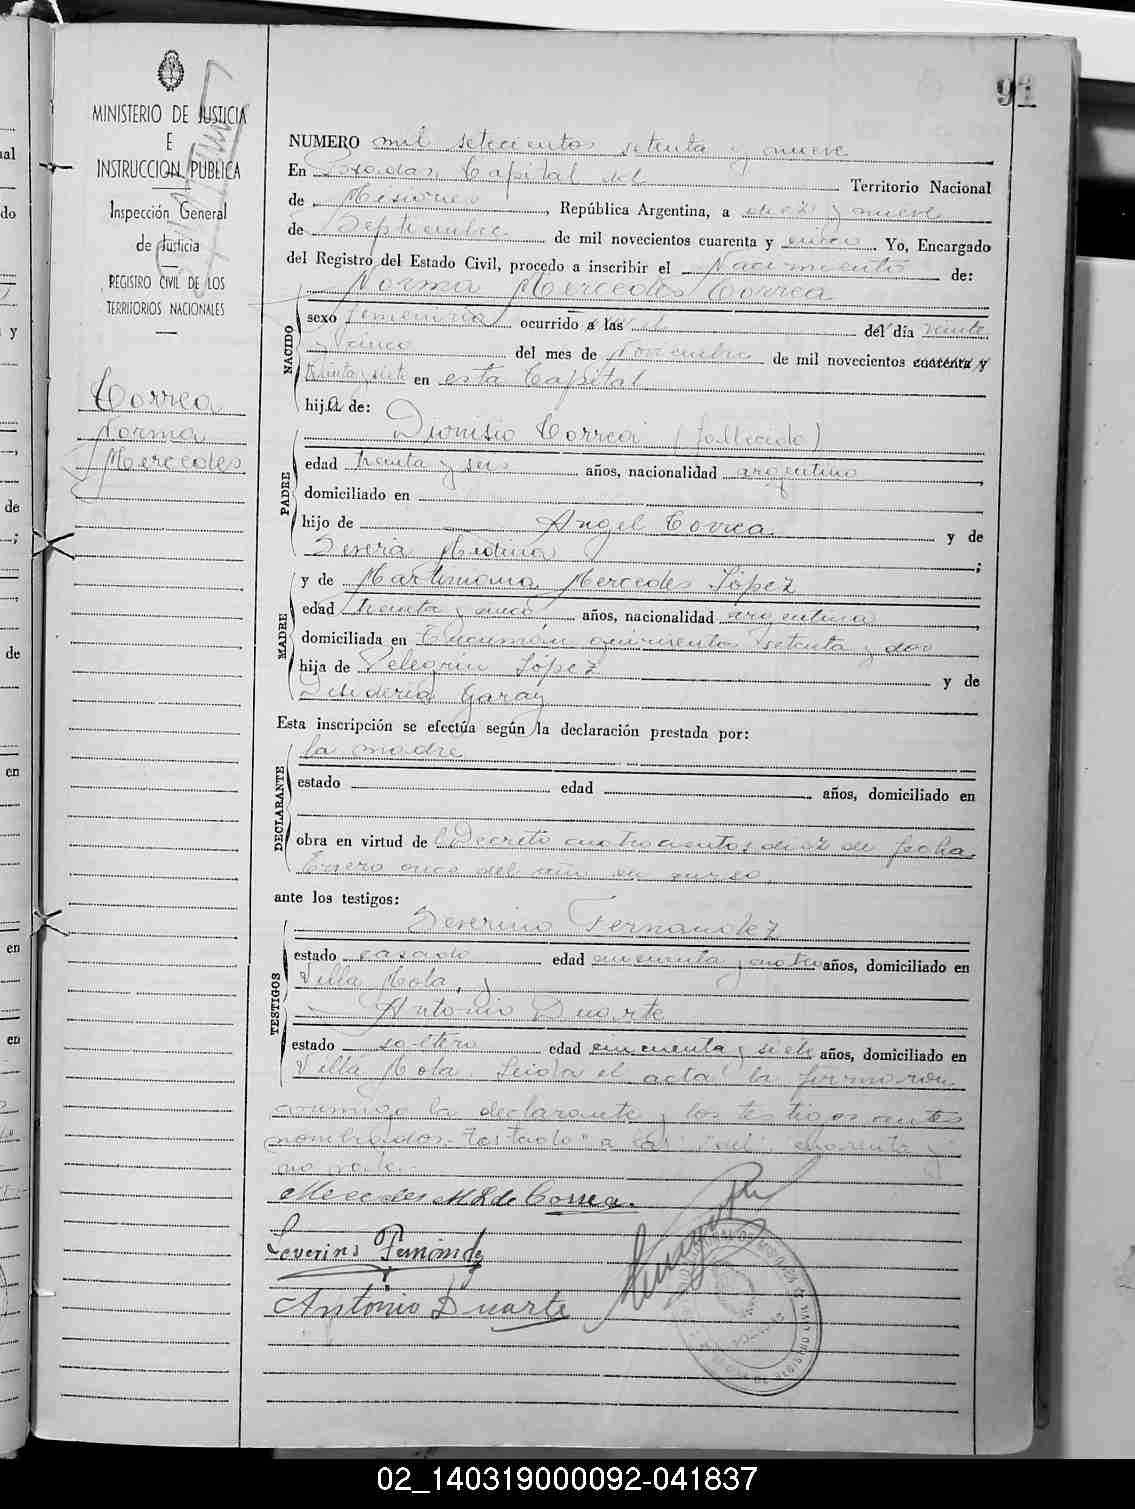 91
MINISTERIO DE JUSTICIA
E
INSTRUCCION PUBLICA
Inspección General
de Justicia
REGISTRO CIVIL DE LOS
TERRITORIOS NACIONALES
Correa
Norma
Mercedes
NUMERO mil setecientos setenta y nueve
En Posadas, Capital del Territorio Nacional
de Misiones, República Argentina, a diez y nueve
de Septiembre de mil novecientos cuarenta y cinco Yo, Encargado
del Registro del Estado Civil, procedo a inscribir el Nacimiento de:
Norma Mercedes Correa
NACIDO
sexo femenino ocurrido a las el del día veinte
y cinco del mes de Noviembre de mil novecientos cuarenta y
treinta y siete en esta Capital
hija de:
Dionisio Correa (fallecido)
PADRE
edad treinta y seis años, nacionalidad argentino
domiciliado en
hijo de Angel Correa y de
Severa Medina ;
MADRE
y de Martiniana Mercedes López
edad treinta y cinco años, nacionalidad argentina
domiciliada en Tucumán quinientos setenta y dos
hija de Pelegrin López y de
Desideria Garay
Esta inscripción se efectúa según la declaración prestada por:
DECLARANTE
la madre
estado edad años, domiciliado en
obra en virtud del Decreto cuatrocientos diez de fecha
Enero once del año en curso.
ante los testigos:
TESTIGOS
Severino Fernandez
estado casado edad cincuenta y cuatro años, domiciliado en
Villa Mola, y
Antonio Duarte
estado soltero edad cincuenta y siete años, domiciliado en
Villa Mola. Leida el acta la firmaron
conmigo la declarante y los testigos antes
nombrados. Testado "a las" "del" cuarenta y
no vale.
Mercedes M L de Correa.
Severino Fernández
Antonio Duarte
02_140319000092-041837